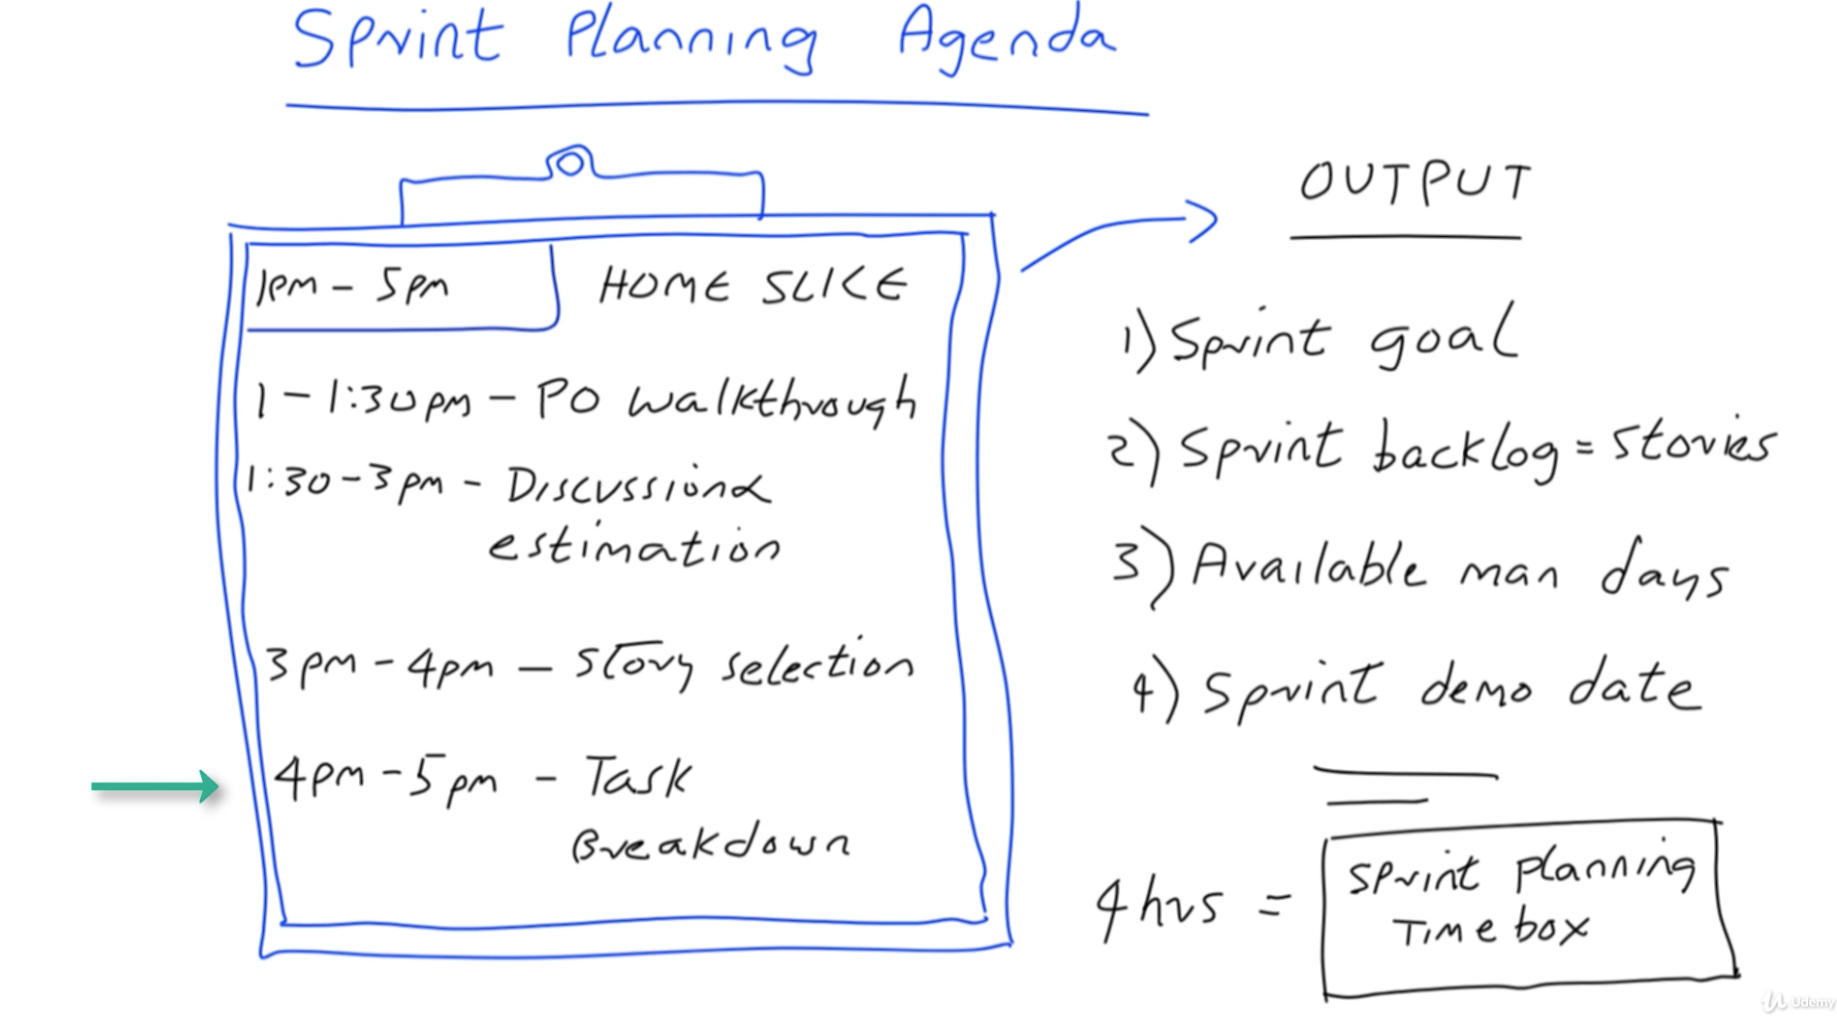 Sprint Planning Agenda
1pm - 5pm
HOME SLICE
1 - 1:30pm - PO walkthrough
1:30 - 3pm - Discussion &
estimation
3pm - 4pm - Story selection
4pm - 5pm - Task
Breakdown
OUTPUT
1) Sprint goal
2) Sprint backlog = stories
3) Available man days
4) Sprint demo date
4 hrs =
Sprint planning
Time box
Udemy